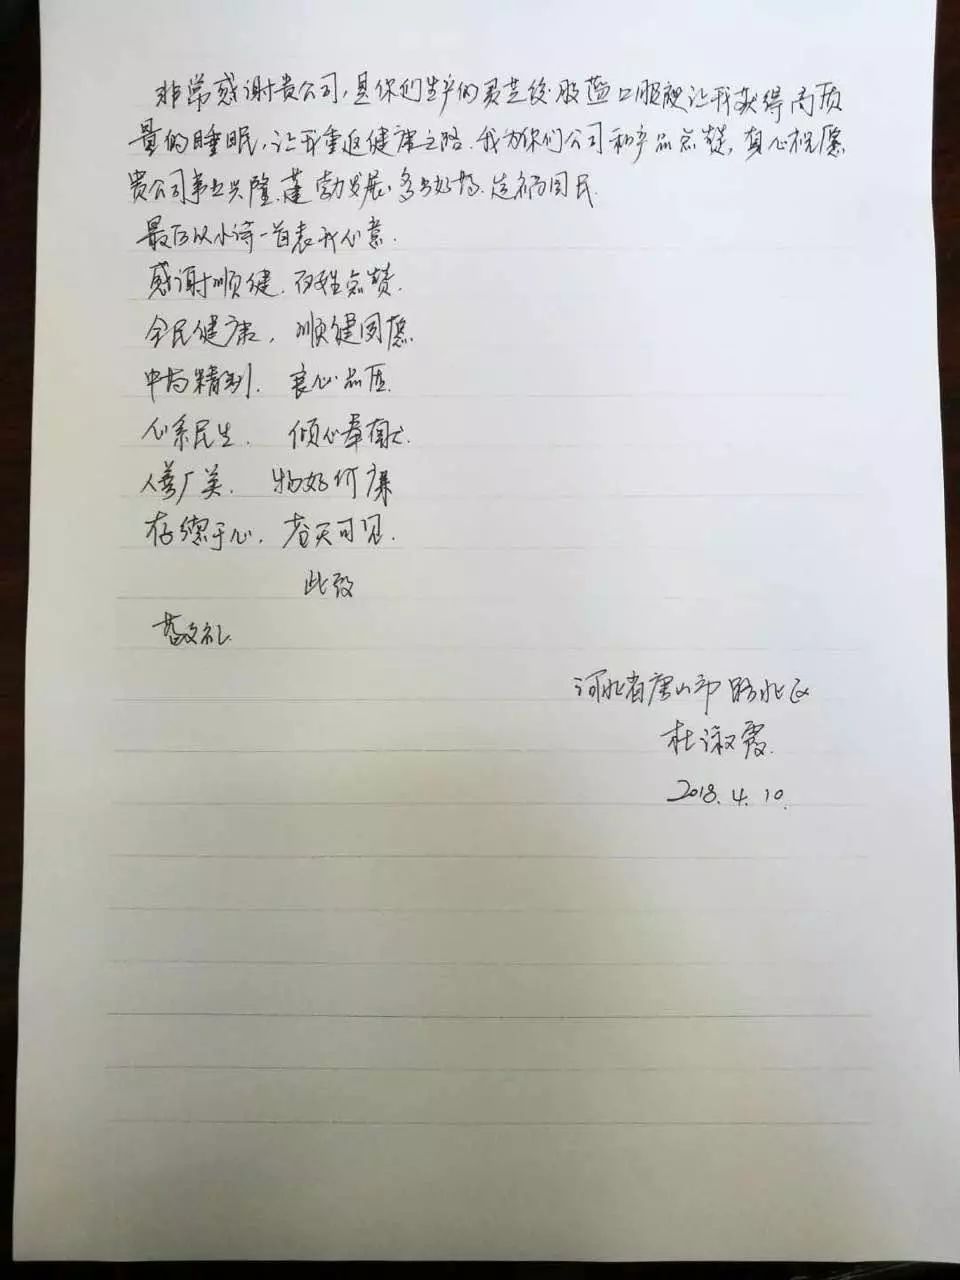 非常感谢贵公司,是你们生产的灵芝绞股蓝口服液让我获得高质
量的睡眠,让我重返健康之路.我为你们公司和产品点赞,真心祝愿
贵公司事业兴隆,蓬勃发展.多出好药.造福国民.
最后以小诗一首表我心意.
感谢顺健.百姓点赞.
全民健康,顺健圆愿
中药精到.良心品质.
心系民生.倾心奉献.
人善厂美.物好价廉
存德于心,苍天可见.
此致
敬礼.
河北省唐山市路北区
杜淑霞.
2018.4.10.